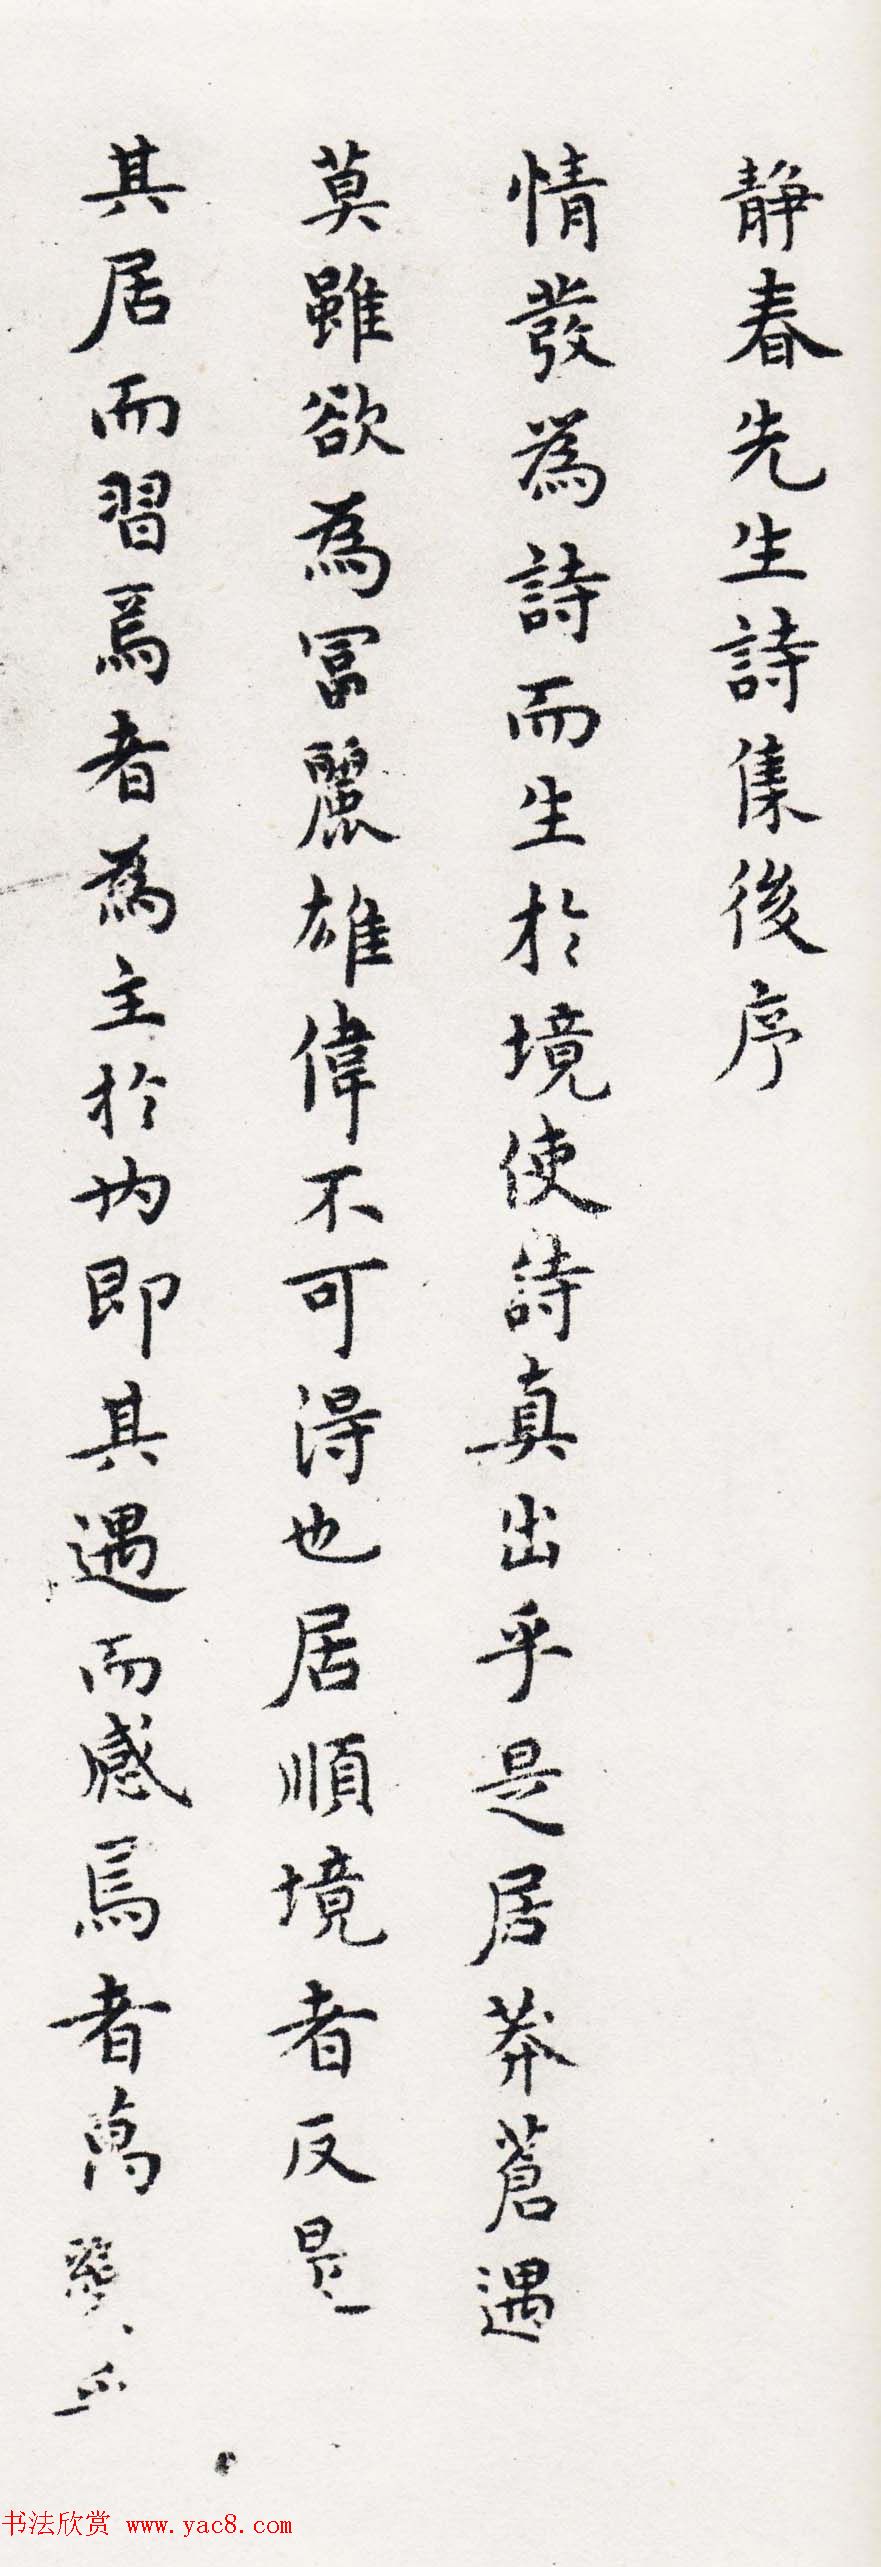 静春先生詩集後序
情發為詩而生於境使詩真出乎是居莽蒼遇
莫雖欲為富麗雄偉不可得也居順境者反是
其居而習焉者為主於內即其遇而感焉者萬變乎
书法欣赏 www.yac8.com